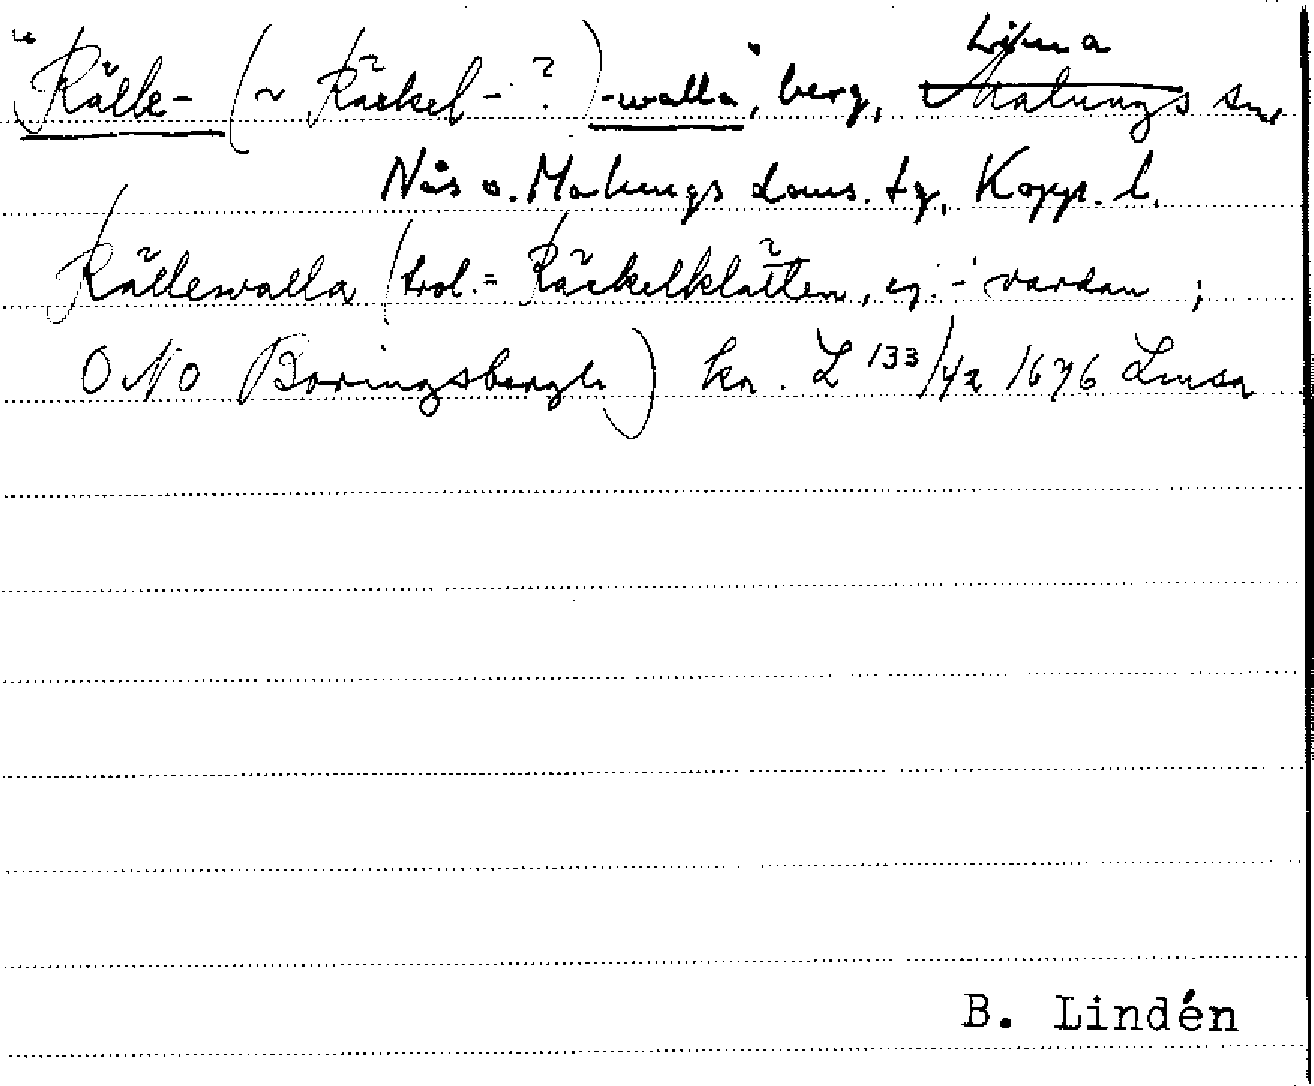 "Rälle- (~ Räckel-?)-walla", berg, Lima ~~Malungs~~ sn,
Nås o. Malungs doms. tg, Kopp. l.
Rällewalla (trol. = Räckelklätten, ej -vardan;
ONO Boringsbergh) ka. L 133/42 1676
B. Lindén